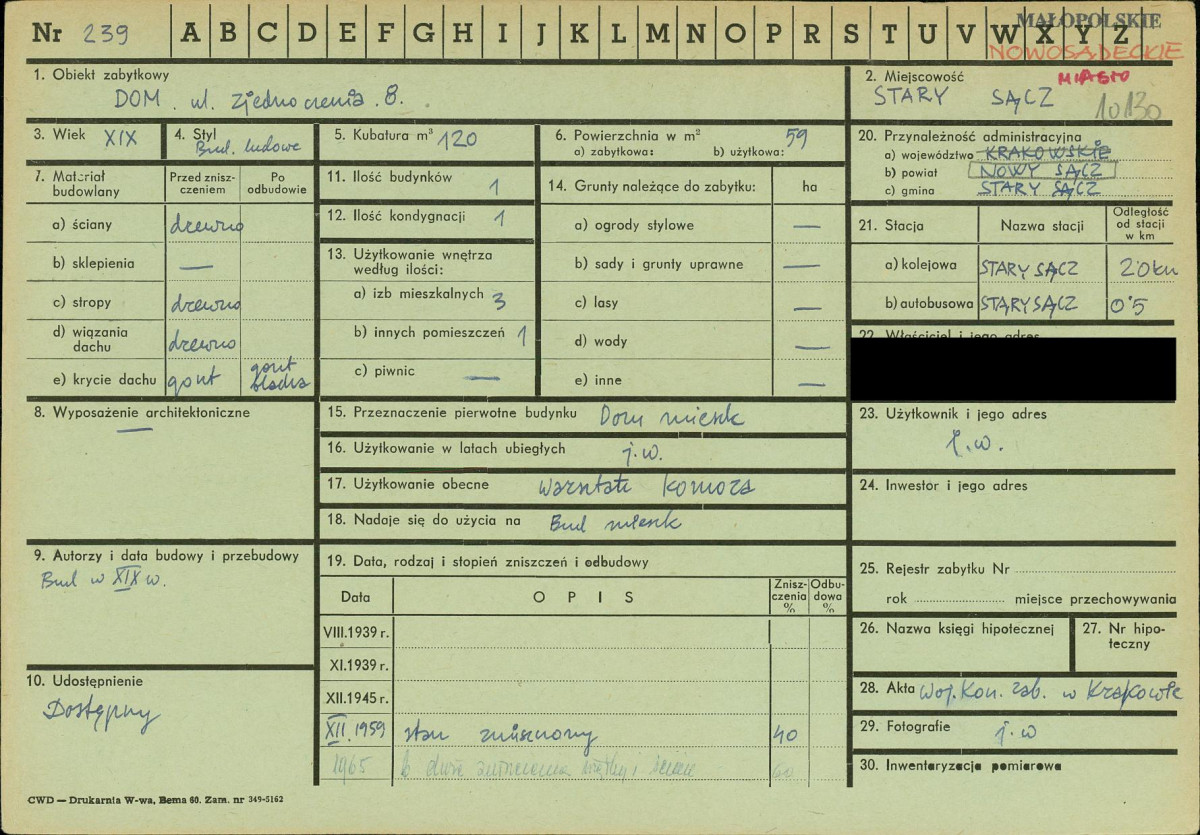 Nr 239 A B C D E F G H I J K L M N O P R S T U V W X Y Z
MAŁOPOLSKIE
NOWOSĄDECKIE
1. Obiekt zabytkowy
DOM. ul. Zjednoczenia. 8.
2. Miejscowość
MIASTO
STARY SĄCZ
10130
3. Wiek XIX
4. Styl
Bud. ludowe
5. Kubatura m³ 120
6. Powierzchnia w m²
59
a) zabytkowa: b) użytkowa:
7. Materiał budowlany
Przed zniszczeniem
Po odbudowie
a) ściany drewno
b) sklepienia —
c) stropy drewno
d) wiązania dachu drewno
e) krycie dachu gont gont blacha
8. Wyposażenie architektoniczne
—
9. Autorzy i data budowy i przebudowy
Bud w XIX w.
10. Udostępnienie
Dostępny
11. Ilość budynków 1
12. Ilość kondygnacji 1
13. Użytkowanie wnętrza według ilości:
a) izb mieszkalnych 3
b) innych pomieszczeń 1
c) piwnic —
14. Grunty należące do zabytku: ha
a) ogrody stylowe —
b) sady i grunty uprawne —
c) lasy —
d) wody —
e) inne —
15. Przeznaczenie pierwotne budynku Dom mieszk
16. Użytkowanie w latach ubiegłych j.w.
17. Użytkowanie obecne warsztat komora
18. Nadaje się do użycia na Bud mieszk
19. Data, rodzaj i stopień zniszczeń i odbudowy
Data
O P I S
Zniszczenia %
Odbudowa %
VIII.1939 r.
XI.1939 r.
XII.1945 r.
XII.1959 stan zniszczony 40
1965 60
20. Przynależność administracyjna
a) województwo KRAKOWSKIE
b) powiat NOWY SĄCZ
c) gmina STARY SĄCZ
21. Stacja
Nazwa stacji
Odległość od stacji w km
a) kolejowa STARY SĄCZ 2.0 km
b) autobusowa STARY SĄCZ 0.5
22. Właściciel i jego adres
23. Użytkownik i jego adres
j.w.
24. Inwestor i jego adres
25. Rejestr zabytku Nr
rok miejsce przechowywania
26. Nazwa księgi hipotecznej
27. Nr hipoteczny
28. Akta Woj. Kon. Zab. w Krakowie
29. Fotografie j.w
30. Inwentaryzacja pomiarowa
CWD — Drukarnia W-wa, Bema 60. Zam. nr 349-5162